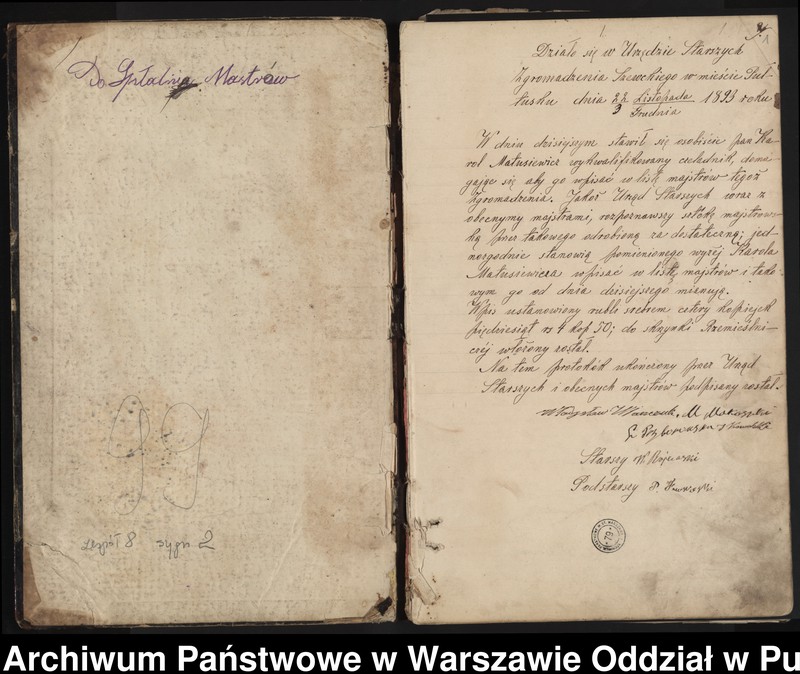 Do
Majstrów
99
Zespół 8 sygn 2
1
Działo się w Urzędzie Starszych
Zgromadzenia Szewckiego w mieście Puł-
tusku dnia 22 Listopada 1893 roku
3 Grudnia
W dniu dzisiejszym stawił się osobiście pan Ka-
rol Matusiewicz wykwalifikowany czeladnik, doma-
gając się aby go wpisać w listę majstrów tegoż
Zgromadzenia. Jakoż Urząd Starszych wraz z
obecnymy majstrami, rozpoznawszy sztukę majstrows-
ką przez takowego odrobioną za dostateczną; jed-
nozgodnie stanowią pomienionego wyżéj Karola
Matusiewicza wpisać w listę majstrów i tako-
wym go od dnia dzisiejszego mianują.
Wpis ustanowiony rubli srebrem cztery kopiejek
pięćdziesiąt rs 4 kop 50; do skrzynki Rzemieślni-
czéj włożony został.
Na tem protokół ukończony przez Urząd
Starszych i obecnych majstrów podpisany został.
Władysław
Starszy
Podstarszy
79
Archiwum Państwowe w Warszawie Oddział w Pu